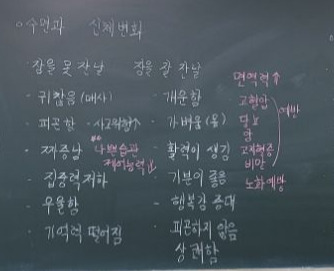 수면과 신체변화
잠을 못 잔날
귀찮음 (매사)
피곤함 · 사고위험↑
지증남 나쁜습관
제어능력↓
집중력저하
우울함
기억력 떨어짐
잠을 잘 잔날
개운함
가벼움 (몸)
활력이 생김
기분이 좋음
행복감 증대
피곤하지 않음
상쾌함
면역력↑
고혈압
당뇨
암
고지혈증
비만
예방
노화예방